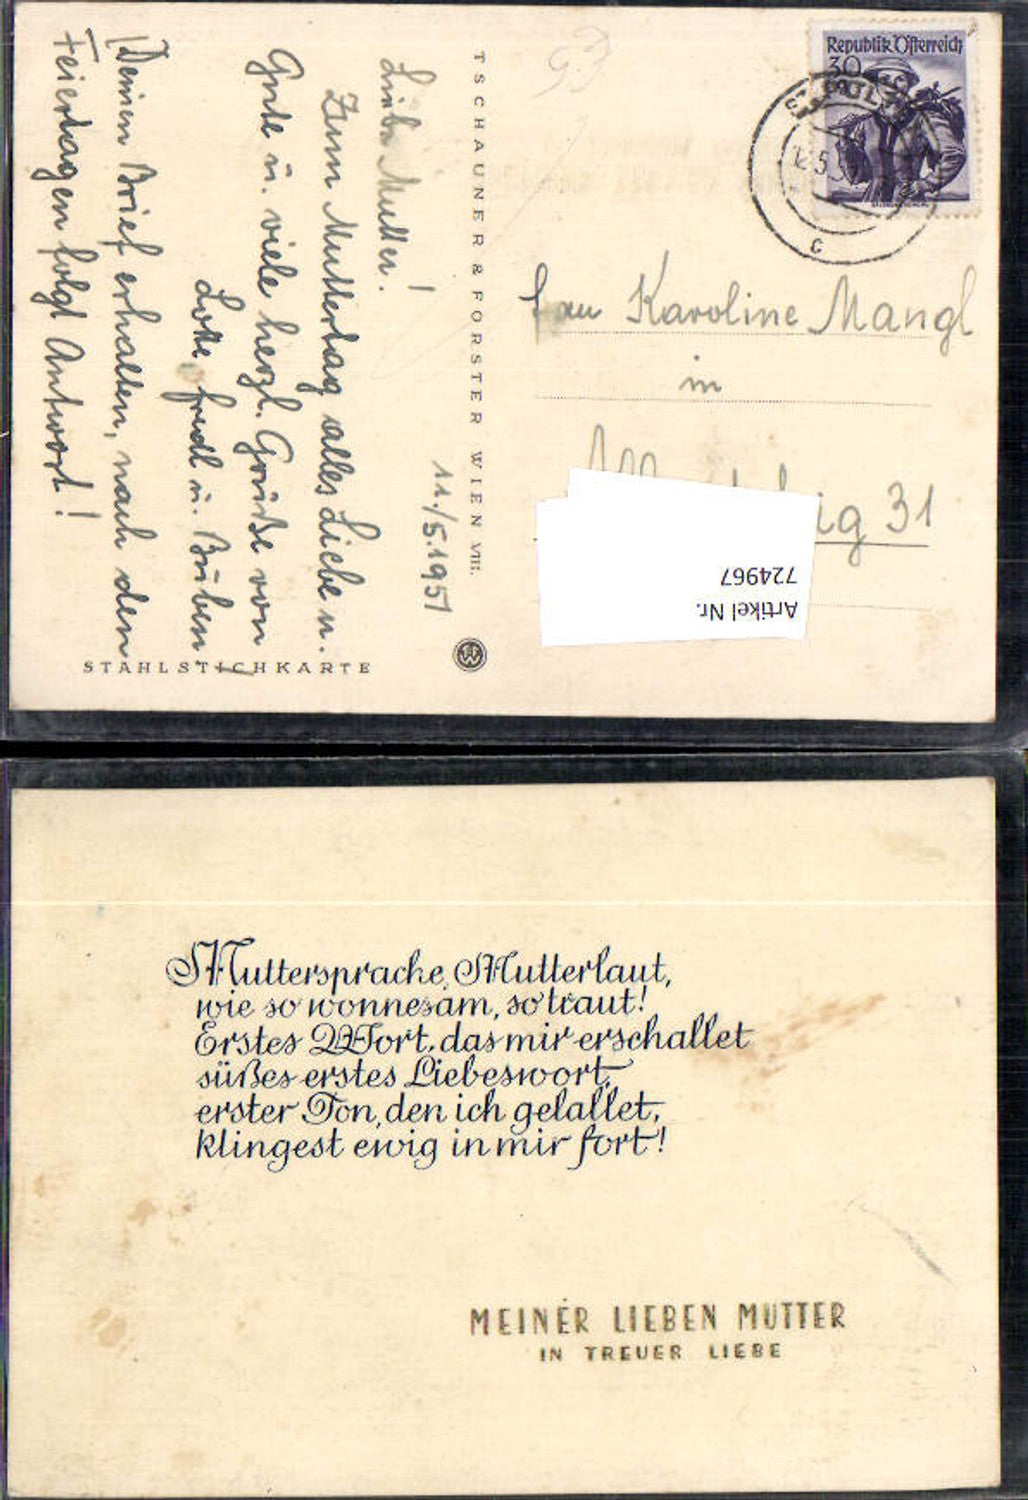 Liebe Mutter!
Zum Muttertag alles Liebe u.
Gute u. viele herzl. Grüße von
Lotte, Friedl u. Buben
Deinen Brief erhalten, nach den
Feiertagen folgt Antwort!
11./5.1951
TSCHAUNER & FORSTER WIEN VIII.
STAHLSTICHKARTE
Republik Österreich
30
ST. PÖLTEN
C
Frau Karoline Mangl
in
31
Artikel Nr.
724967
Muttersprache, Mutterlaut,
wie so wonnesam, so traut!
Erstes Wort, das mir erschallet
süßes erstes Liebeswort,
erster Ton, den ich gelallet,
klingest ewig in mir fort!
MEINER LIEBEN MUTTER
IN TREUER LIEBE